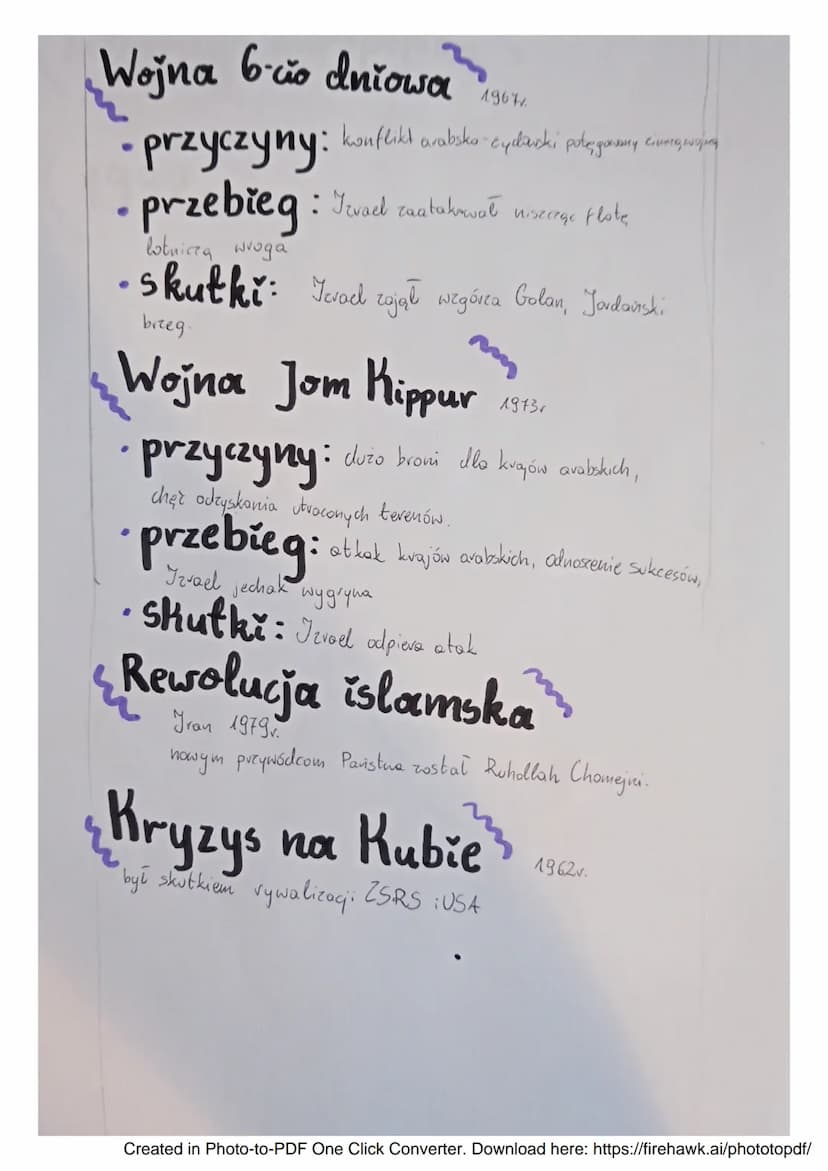 Wojna 6-cio dniowa 1967r.
• przyczyny: konflikt arabsko-żydowski potęgowany zimną wojną
• przebieg: Izrael zaatakował niszcząc flotę
lotniczą wroga
• skutki: Izrael zajął wzgórza Golan, Jordański
brzeg.
Wojna Jom Kippur 1973r
• przyczyny: dużo broni dla krajów arabskich,
chęć odzyskania utraconych terenów.
• przebieg: atak krajów arabskich, odnoszenie sukcesów,
Izrael jednak wygrywa
• skutki: Izrael odpiera atak
Rewolucja islamska
Iran 1979r.
nowym przywódcom Państwa został Ruhollah Chomejni.
Kryzys na Kubie 1962r.
był skutkiem rywalizacji ZSRS i USA
Created in Photo-to-PDF One Click Converter. Download here: https://firehawk.ai/phototopdf/